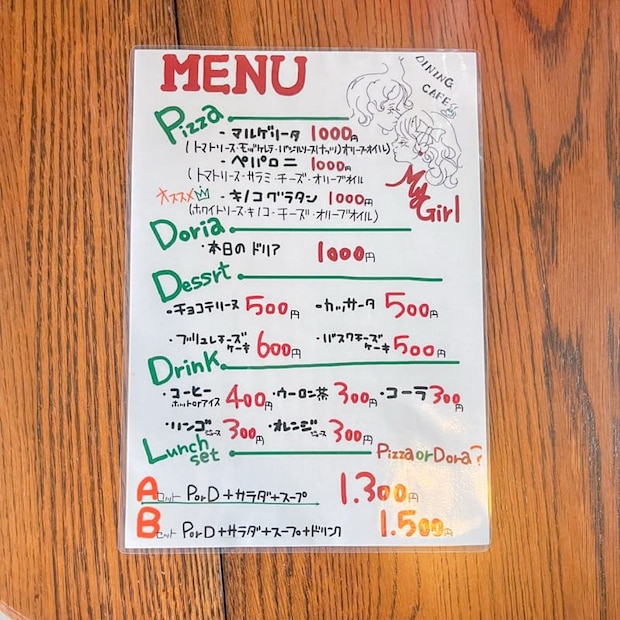 MENU
DINING
CAFE
My Girl
Pizza
・マルゲリータ 1000円
(トマトソース・モッツァレラ・バジルソース(ナッツ)オリーブオイル)
・ペパロニ 1000円
(トマトソース・サラミ・チーズ・オリーブオイル
オススメ ・キノコグラタン 1000円
(ホワイトソース・キノコ・チーズ・オリーブオイル)
Doria
・本日のドリア 1000円
Dessrt
・チョコテリーヌ 500円 ・カッサータ 500円
・ブリュレチーズケーキ 600円 ・バスクチーズケーキ 500円
Drink
・コーヒー ホットorアイス 400円 ・ウーロン茶 300円 ・コーラ 300円
・リンゴジュース 300円 ・オレンジジュース 300円
Lunch set Pizza or Dora?
Aセット PorD+カラダ+スープ 1.300円
Bセット PorD+サラダ+スープ+ドリンク 1.500円